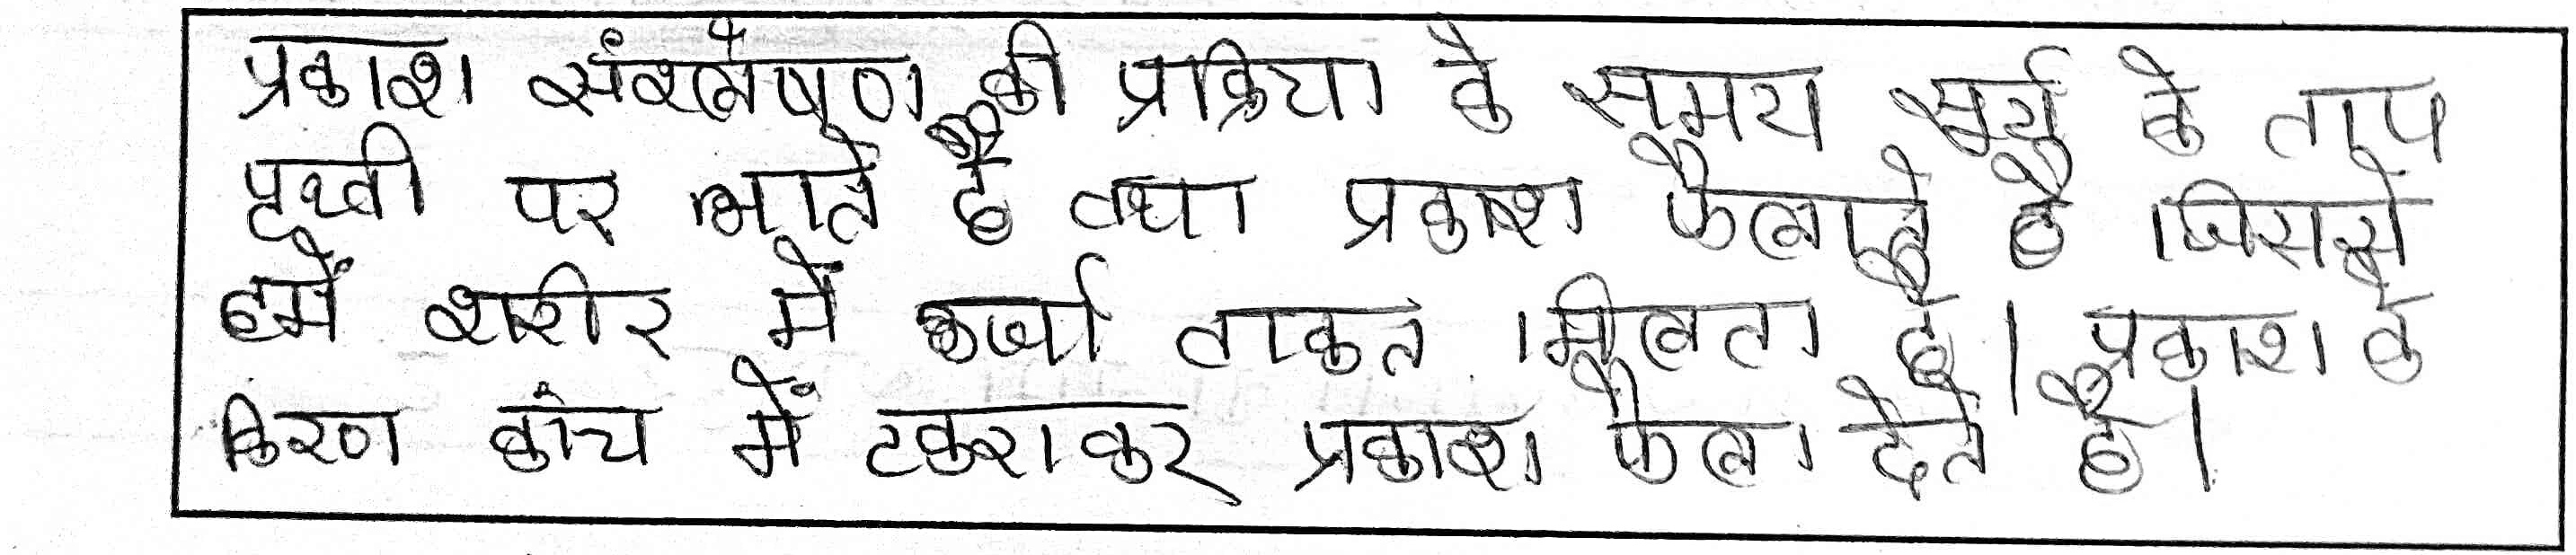 प्रकाश संश्लेषण की प्रक्रिया के समय सूर्य के ताप
पृथ्वी पर आते है तथा प्रकाश फैलाते है जिससे
हमें शरीर में ऊर्जा ताकत मिलता है। प्रकाश के
किरण कांच में टकराकर प्रकाश फैला देते है।